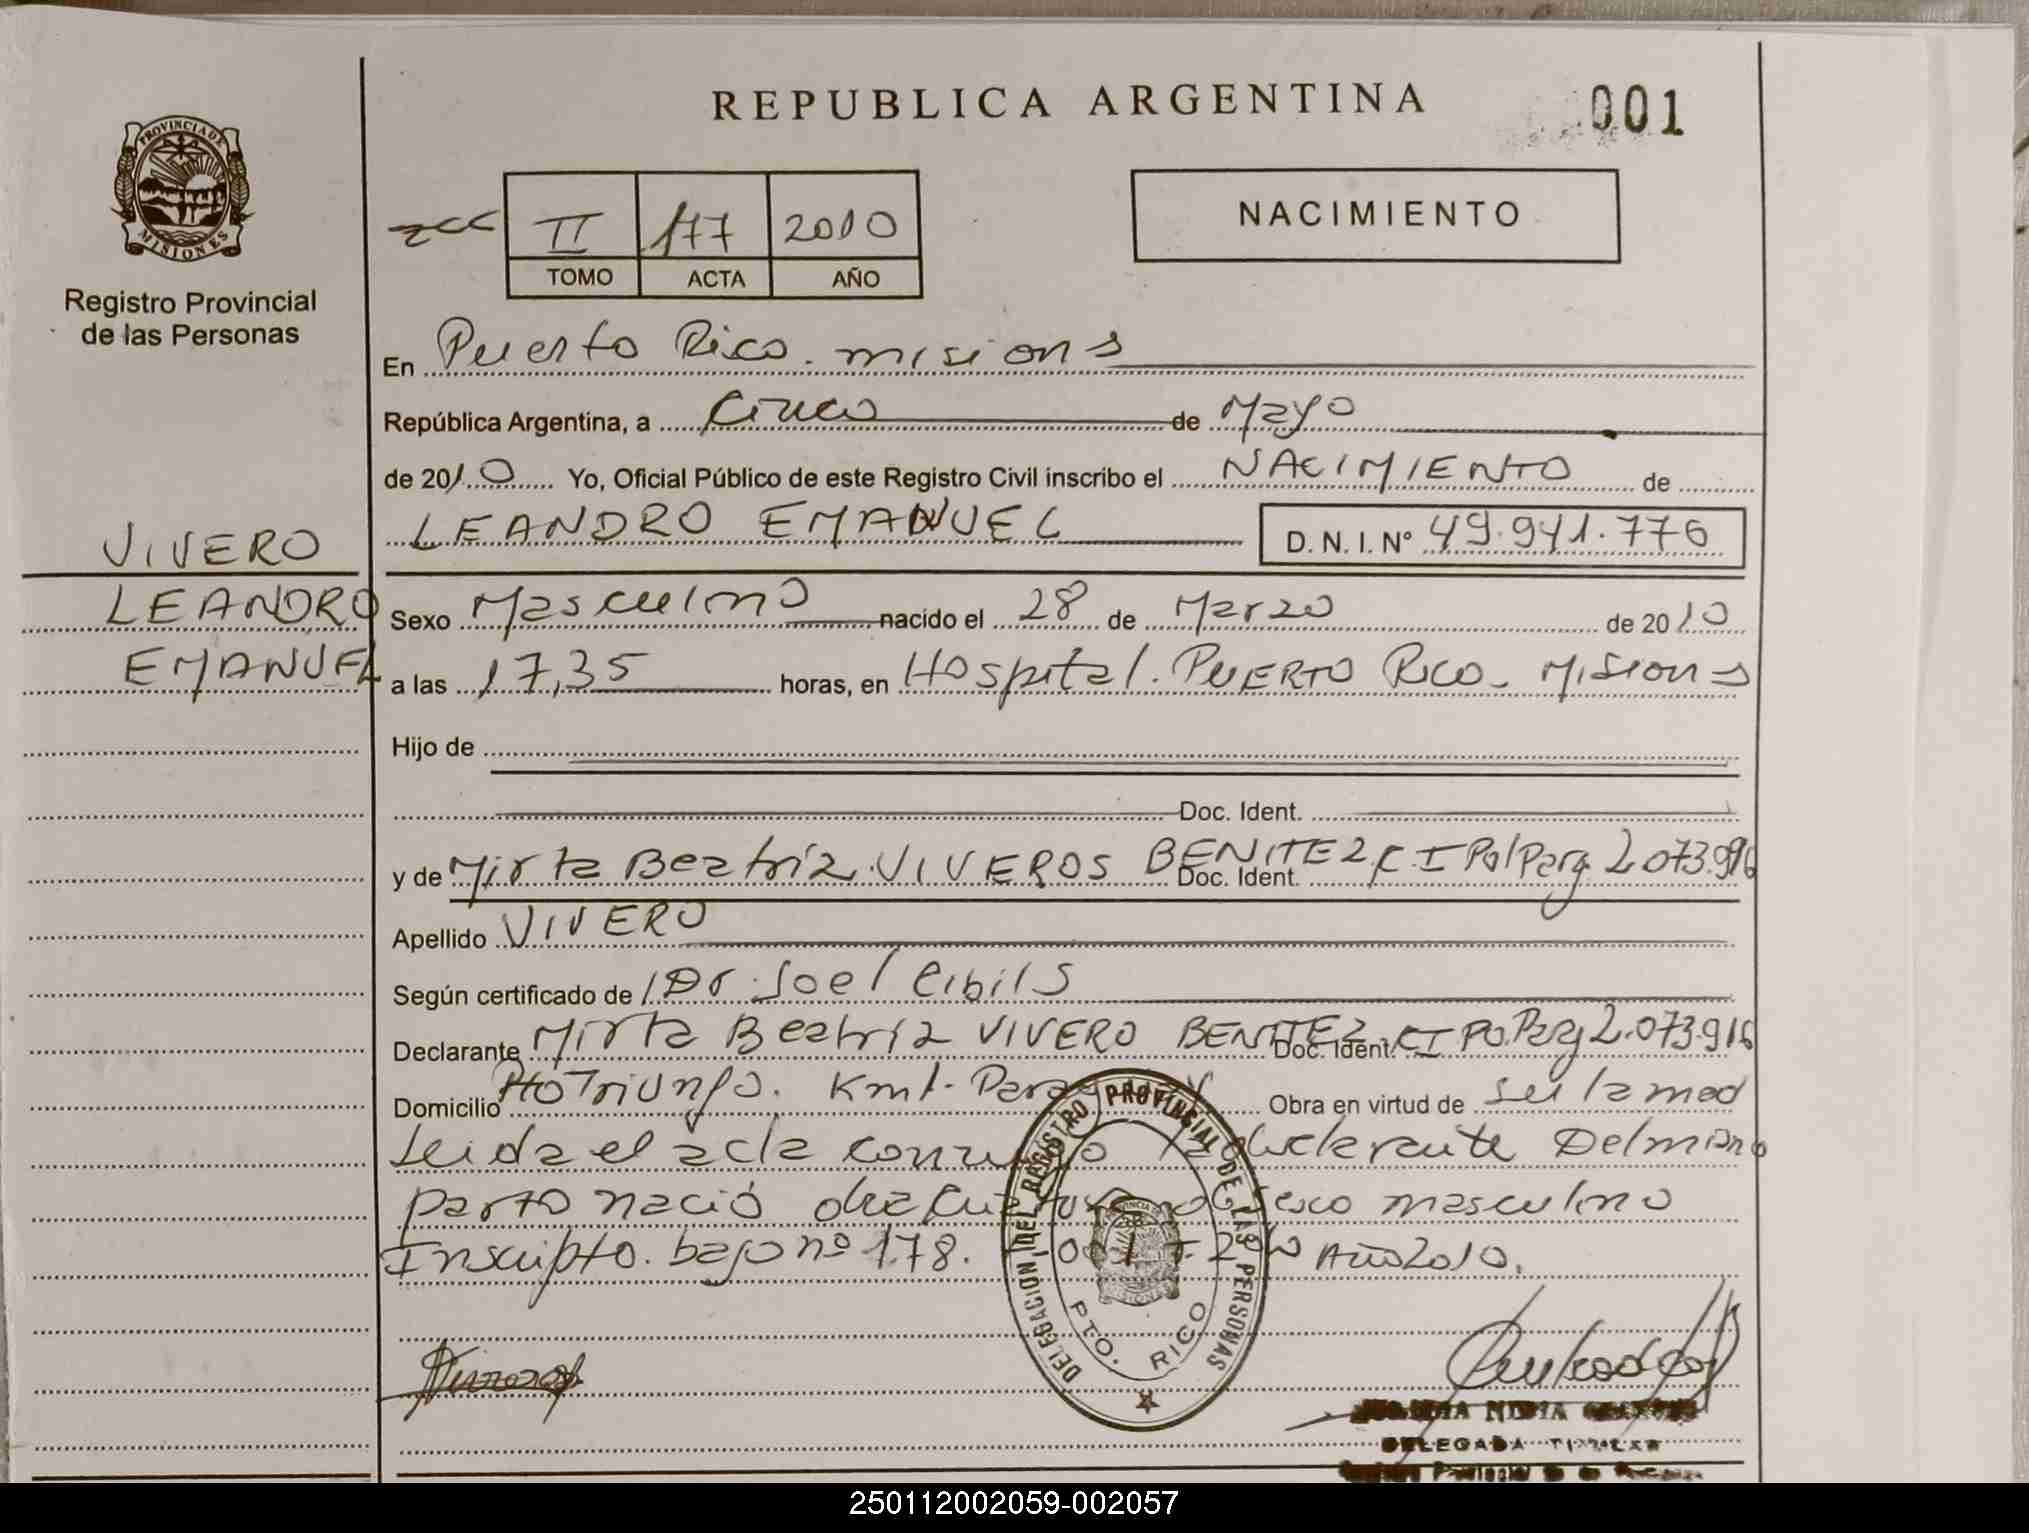 REPUBLICA ARGENTINA
001
PROVINCIA DE
MISIONES
Registro Provincial
de las Personas
II 177 2010
TOMO ACTA AÑO
NACIMIENTO
En Puerto Rico. Misions
República Argentina, a Cinco de Mayo
de 2010 Yo, Oficial Público de este Registro Civil inscribo el NACIMIENTO de
LEANDRO EMANUEL D. N. I. N° 49.941.776
VIVERO
LEANDRO
EMANUEL
Sexo Masculino nacido el 28 de Marzo de 2010
a las 17,35 horas, en Hospital. PUERTO Rico. Misions
Hijo de
Doc. Ident.
y de Mirta Beatriz VIVEROS BENITEZ Doc. Ident. C.I Pol Parg 2.073.916
Apellido VIVERO
Según certificado de Dr. Joel Cibils
Declarante Mirta Beatriz VIVERO BENITEZ Doc. Ident. CI PO.Parg 2.073.916
Domicilio Pto Triunfo. Km1- Paraguay Obra en virtud de ser la mad
Leida el acta la declarante Del mismo
parto nació sexo masculino
Inscripto. bajo nº 178. Año 2010.
DELEGACION DEL REGISTRO PROVINCIAL DE LAS PERSONAS
PTO. RICO
DELEGADA
250112002059-002057